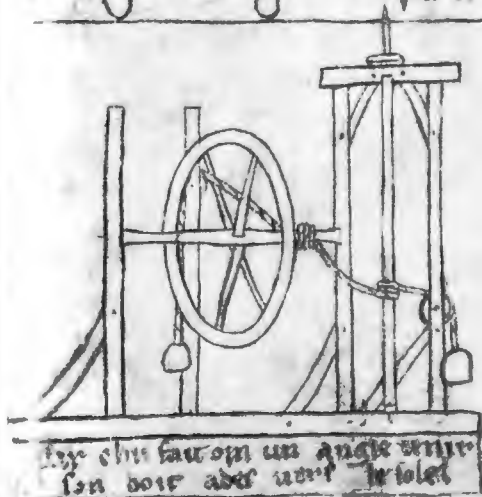 Par chu fait om un angle tenir
son doit ades uers le solel